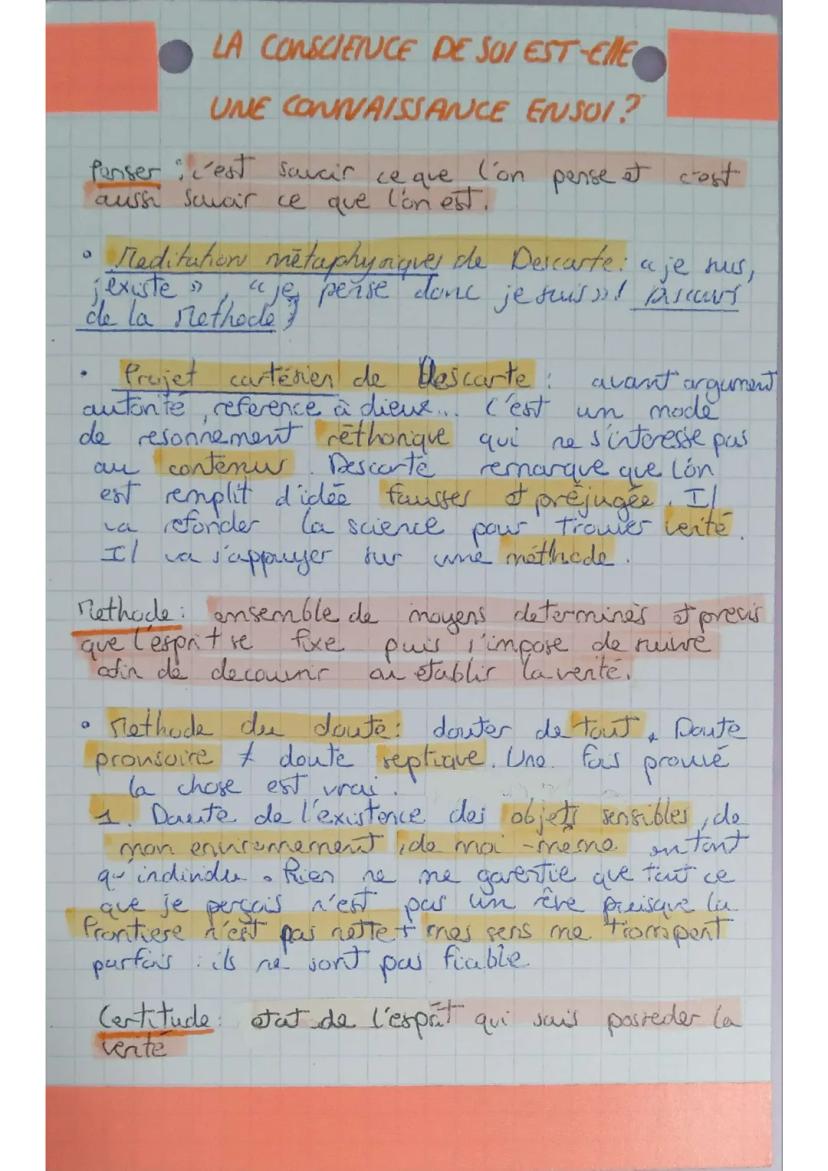 LA CONSCIENCE DE SOI EST-ELLE
UNE CONNAISSANCE EN SOI ?
Penser : c'est savoir ce que l'on pense et c'est
aussi savoir ce que l'on est.
• Meditation métaphysiques de Descarte : « je suis,
j'existe », « je pense donc je suis » ! Discours
de la Methode
• Projet cartésien de Descarte : avant argument
autorité, reference à dieux... C'est un mode
de resonnement réthorique qui ne s'interesse pas
au contenus. Descarte remarque que l'on
est remplit d'idée fausses et préjugée. Il
va refonder la science pour trouver verité.
Il va s'appuyer sur une méthode.
Methode : ensemble de moyens determinés et precis
que l'esprit se fixe puis s'impose de suivre
afin de decouvrir ou établir la verité.
• Methode du doute : douter de tout. Doute
provisoire ≠ doute septique. Une fois prouvé
la chose est vrai.
1. Doute de l'existence des objets sensibles, de
mon environnement, de moi-meme en tant
qu'individu. Rien ne me garentie que tout ce
que je perçois n'est pas un rêve puisque la
frontiere n'est pas nette + mes sens me trompent
parfois : ils ne sont pas fiable.
Certitude : etat de l'esprit qui sais posseder la
verité